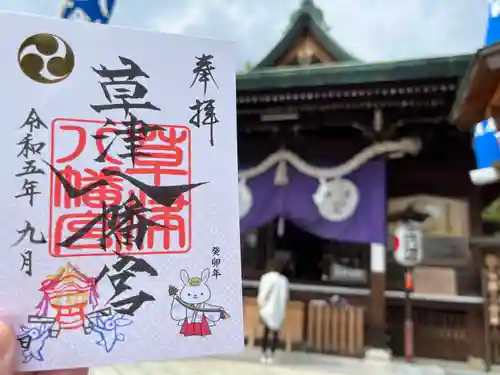 奉拝
草津八幡宮
草津
八幡宮
令和五年 九月 日
癸卯年